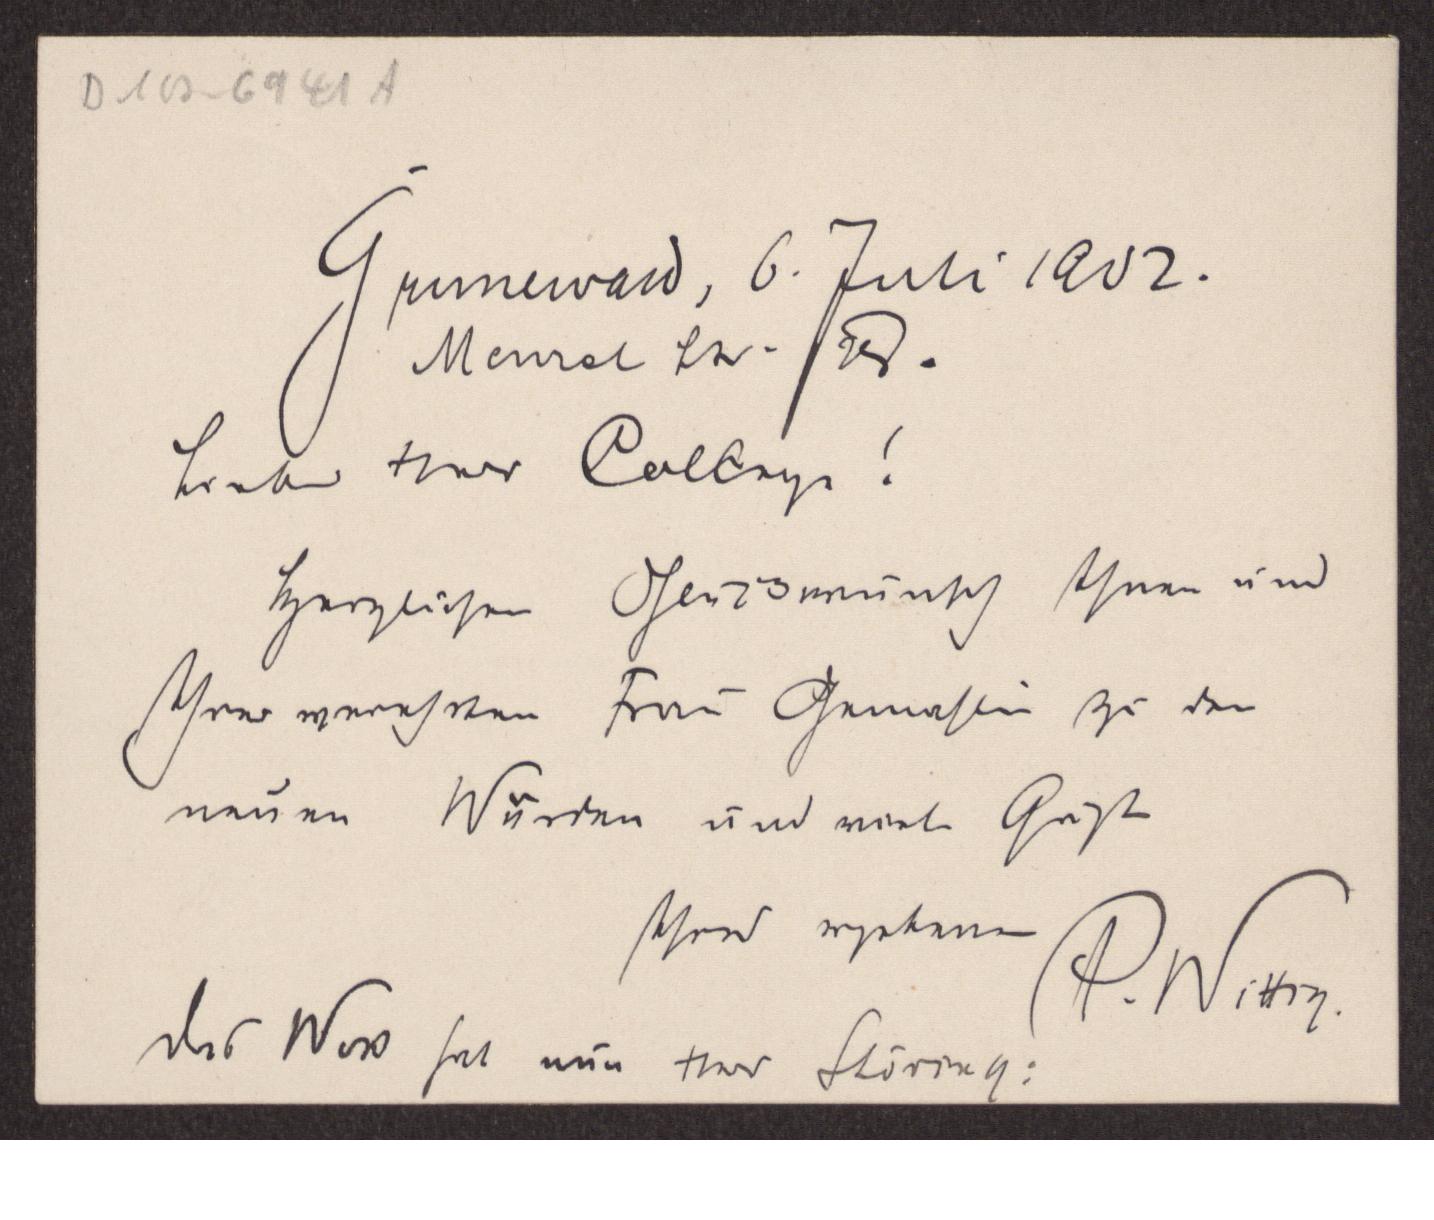 Grunewald, 6. Juli 1902.
Lieber Herr College!
Herzlichen Glückwunsch Ihnen und
Ihrer verehrten Frau Gemahlin zu den
neuen Würden und viele Grüße
Ihres ergebenen
P. Wittig.
Das Wort hat nun Herr Störing: